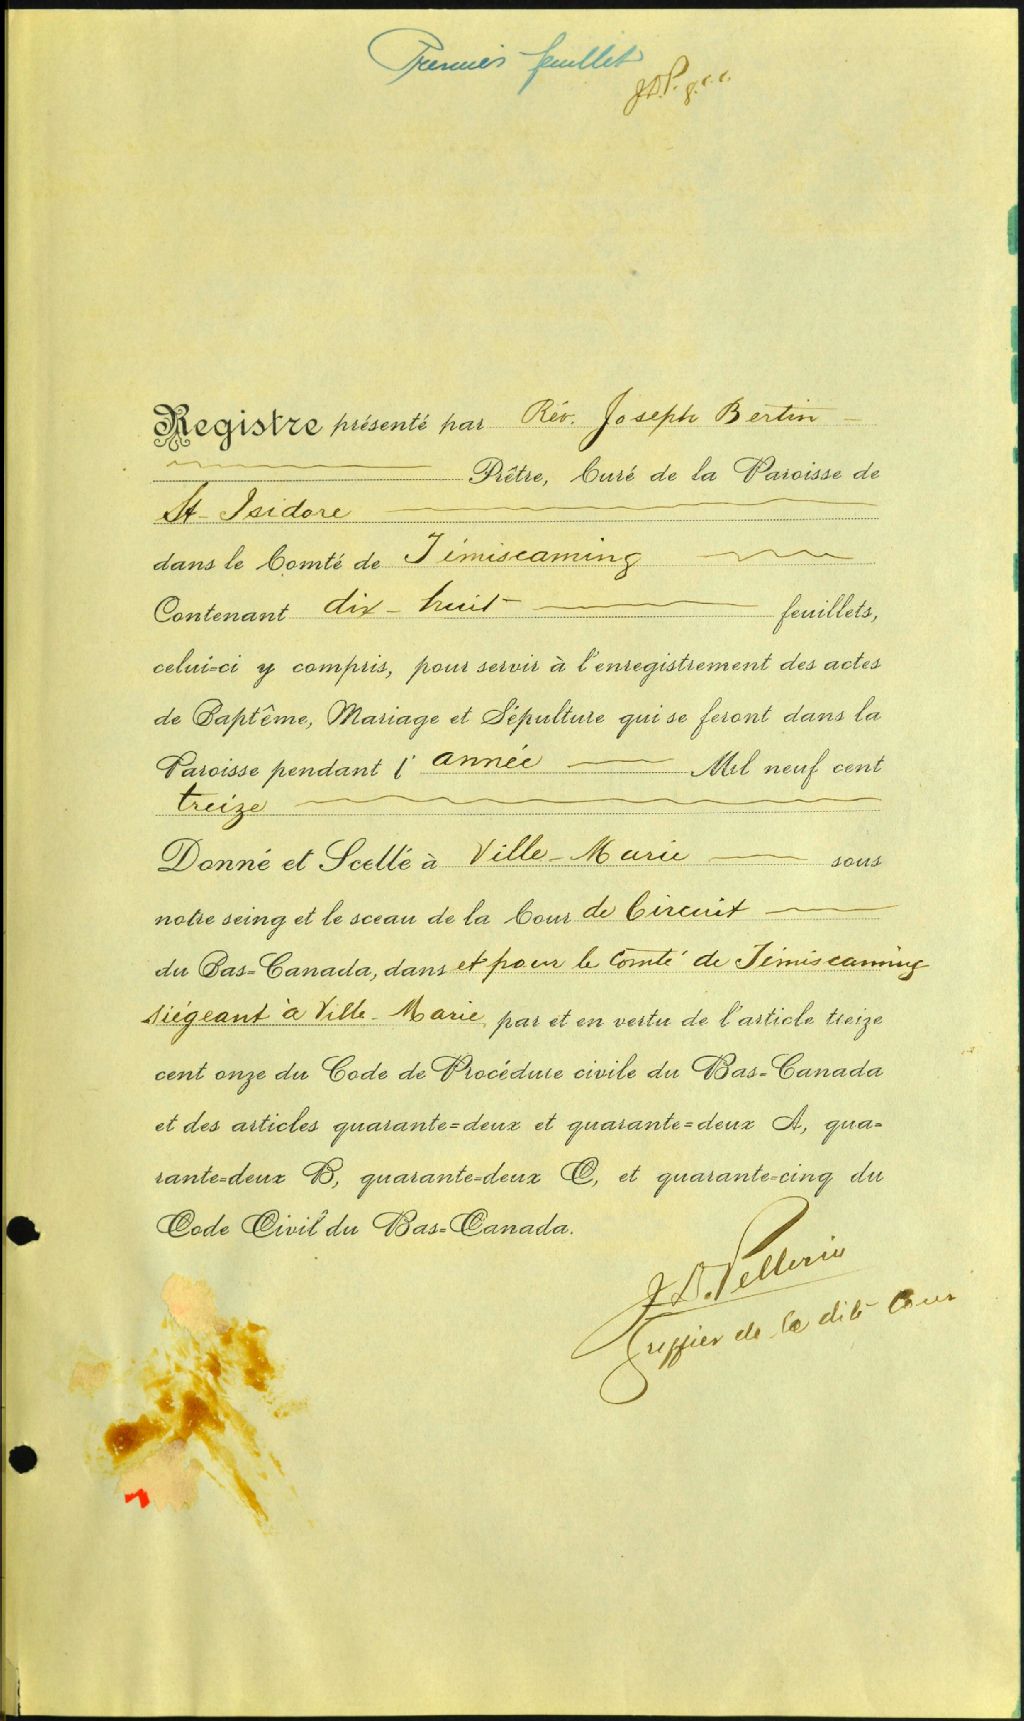 Premier feuillet
J.D.P. g.c.c.
Registre présenté par Rév. Joseph Bertin
Prêtre, Curé de la Paroisse de
St-Isidore
dans le Comté de Témiscaming
Contenant dix-huit feuillets,
celui-ci y compris, pour servir à l'enregistrement des actes
de Baptême, Mariage et Sépulture qui se feront dans la
Paroisse pendant l'année Mil neuf cent
treize
Donné et Scellé à Ville-Marie sous
notre seing et le sceau de la Cour de Circuit
du Bas-Canada, dans et pour le Comté de Témiscaming
siégeant à Ville-Marie, par et en vertu de l'article treize
cent onze du Code de Procédure civile du Bas-Canada
et des articles quarante-deux et quarante-deux A, qua-
rante-deux B, quarante-deux C, et quarante-cinq du
Code Civil du Bas-Canada.
J.D. Pellerin
Greffier de la dite Cour